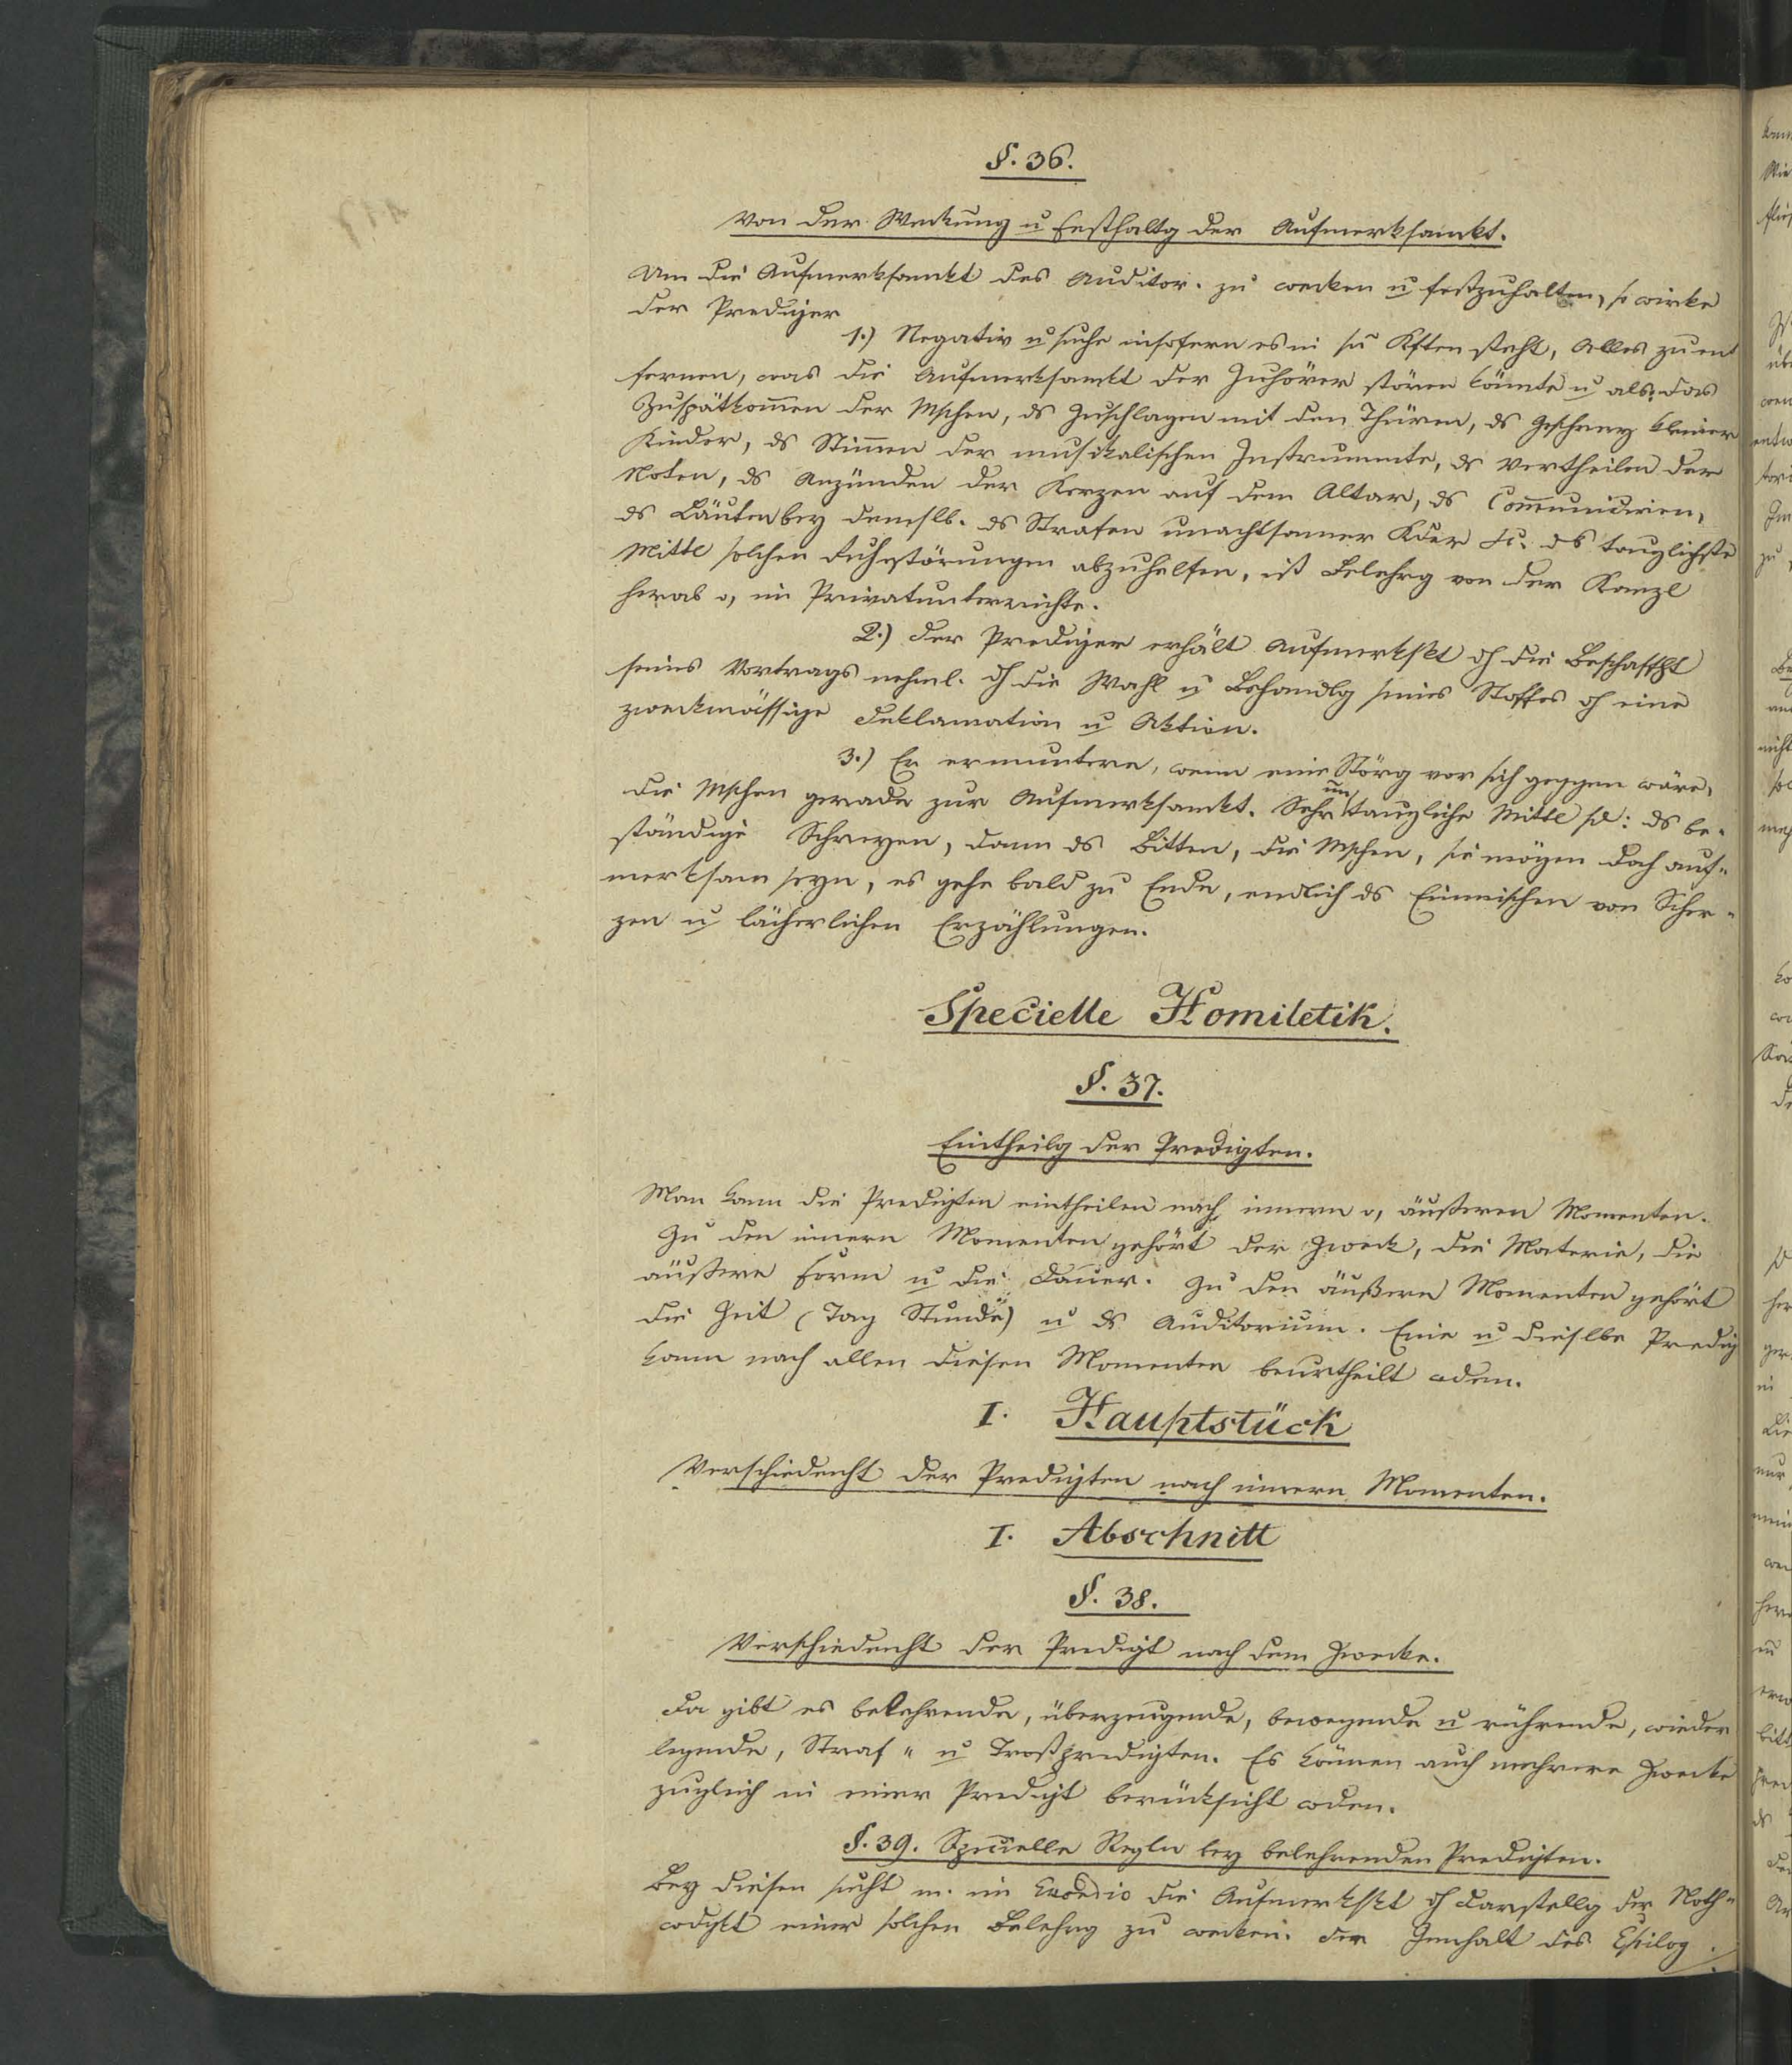 §. 36.
Von der Weckung u Festhaltg der Aufmerksamkt.
Um die Aufmerksamkt des Auditor. zu wecken u festzuhalten, so wirke
der Prediger
1.) Negativ u suche insofern es in sn Kften steht, Alles zu ent
fernen, was die Aufmerksamkt der Zuhörer stören könnte u als: das
Zuspätkom̅en der Mschen, ds Zuschlagen mit den Thüren, ds Geschrey kleiner
Kinder, ds Stim̅en der musikalischen Instrumente, ds Vertheilen der
Noten, ds Anzünden der Kerzen auf dem Altar, ds Com̅uniciren,
ds Läuten bey demslb. ds Strafen unachtsamer Kder etc. ds tauglichste
Mittl solchen Ruhestörungen abzuhelfen, ist Belehrg von der Kanzl
herab o, im Privatunterrichte.
2.) Der Prediger erhält Aufmerkskt dh die Beschaffht
seines Vortrags nehml. dh die Wahl u Behandlg seines Stoffes dh eine
zweckmässige Deklamation u Aktion.
3.) Er ermuntere, wenn eine Störg vor sich geggen wäre,
die Mschen gerade zur Aufmerksamkt. Sehr un taugliche Mittl sd: ds be-
ständige Schreyen, dann ds Bitten, die Mschen, sie mögen doch auf-
merksam seyn, es gehe bald zu Ende, endlich ds Einmischen von Scher-
zen u lächerlichen Erzählungen.
Specielle Homiletik.
§. 37.
Eintheilg der Predigten.
Man kann die Predigten eintheilen nach innern o, äußeren Momenten.
Zu den innern Momenten gehört der Zweck, die Materie, die
äußere Form u die Dauer. Zu den äußern Momenten gehört
die Zeit (Tag Stunde) u ds Auditorium. Eine u dieselbe Predig
kann nach allen diesen Momenten beurtheilt wden.
I. Hauptstück
Verschiedenht der Predigten nach innern Momenten.
I. Abschnitt
§. 38.
Verschiedenht der Predigt nach dem Zwecke.
Da gibt es belehrende, überzeugende, bewegende u rührende, wieder
legende, Straf - u Trostpredigten. Es können auch mehrere Zwecke
zugleich in einer Predigt berücksicht wden.
§. 39. Specielle Regln bey belehrenden Predigten.
Bey diesen sucht m. im Exordio die Aufmerkskt dh Darstellg der Noth-
wdgkt einer solchen Belehrg zu wecken. Der Innhalt des Epilog